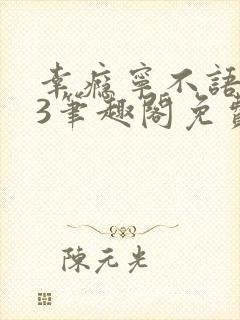 幸瘾寧不語
3筆趣閣免費
陳元光